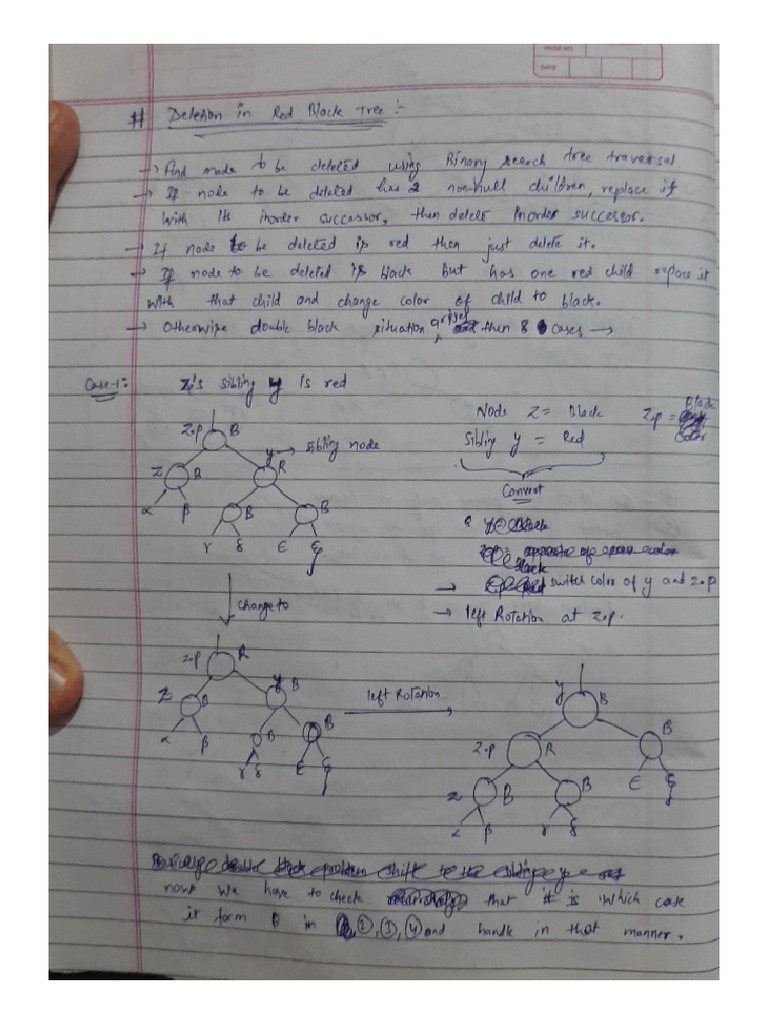 PAGE NO.
DATE
# Deletion in Red Black Tree :-
→ Find node to be deleted using Binary search tree traversal
→ If node to be deleted has 2 non-null children, replace it
with its inorder successor, then delete inorder successor.
→ If node to be deleted is red then just delete it.
→ If node to be deleted is black but has one red child replace it
with that child and change color of child to black.
→ Otherwise double black situation arises then 8 cases →
Case-1: z's sibling y is red
Node z = Black z.p = Black
color
Sibling y = Red
Convert
z.p B
y → sibling node
z B R
α β B B
γ δ ε ξ
y = Black
→ switch color of y and z.p
→ left Rotation at z.p.
change to
z.p R
z B y B
α β B B
γ δ ε ξ
left Rotation
y B
z.p R B
z B B ε ξ
α β γ δ
now we have to check that it is which case
it form in ②, ③, ④ and handle in that manner.